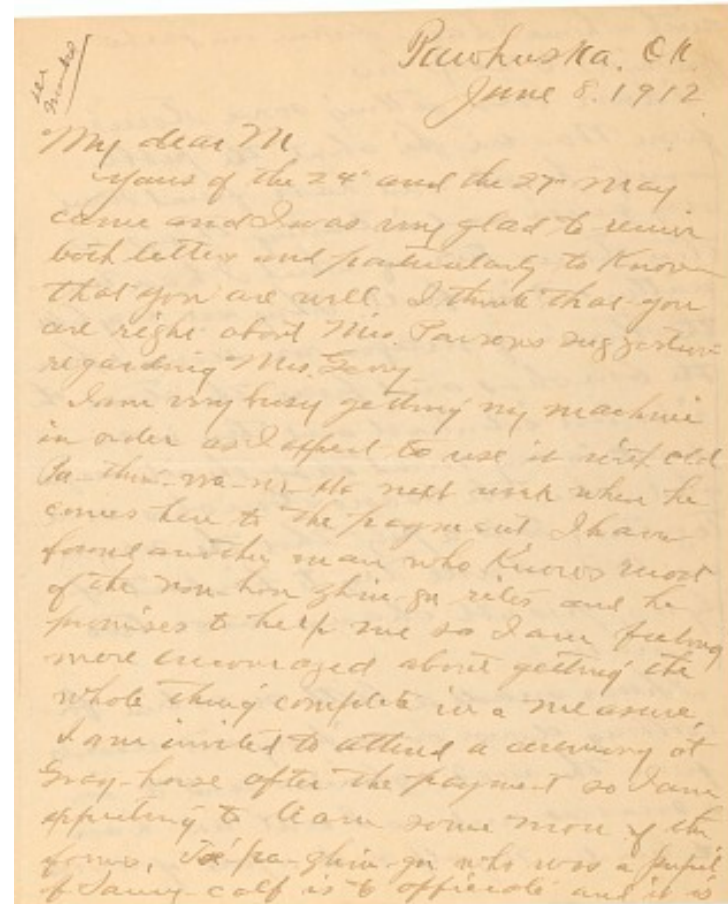 Pawhuska. Ok.
June 8. 1912
My dear M
Yours of the 24" and the 27" May
came and I was very glad to receive
both letters and particularly to know
that you are well. I think that you
are right about Mrs. Parsons suggestion
regarding Mrs.
I am very busy getting my machine
in order as I expect to use it with old
next week when he
comes here to the payment. I have
found another man who knows most
of the non-hon-zhin-ga rites and he
promises to help me so I am feeling
more encouraged about getting the
whole thing complete in a measure.
I am invited to attend a ceremony at
Gray-horse after the payment so I am
expecting to learn some more of the
forms. who was a pupil
of Saucy-calf is to officiate and it is